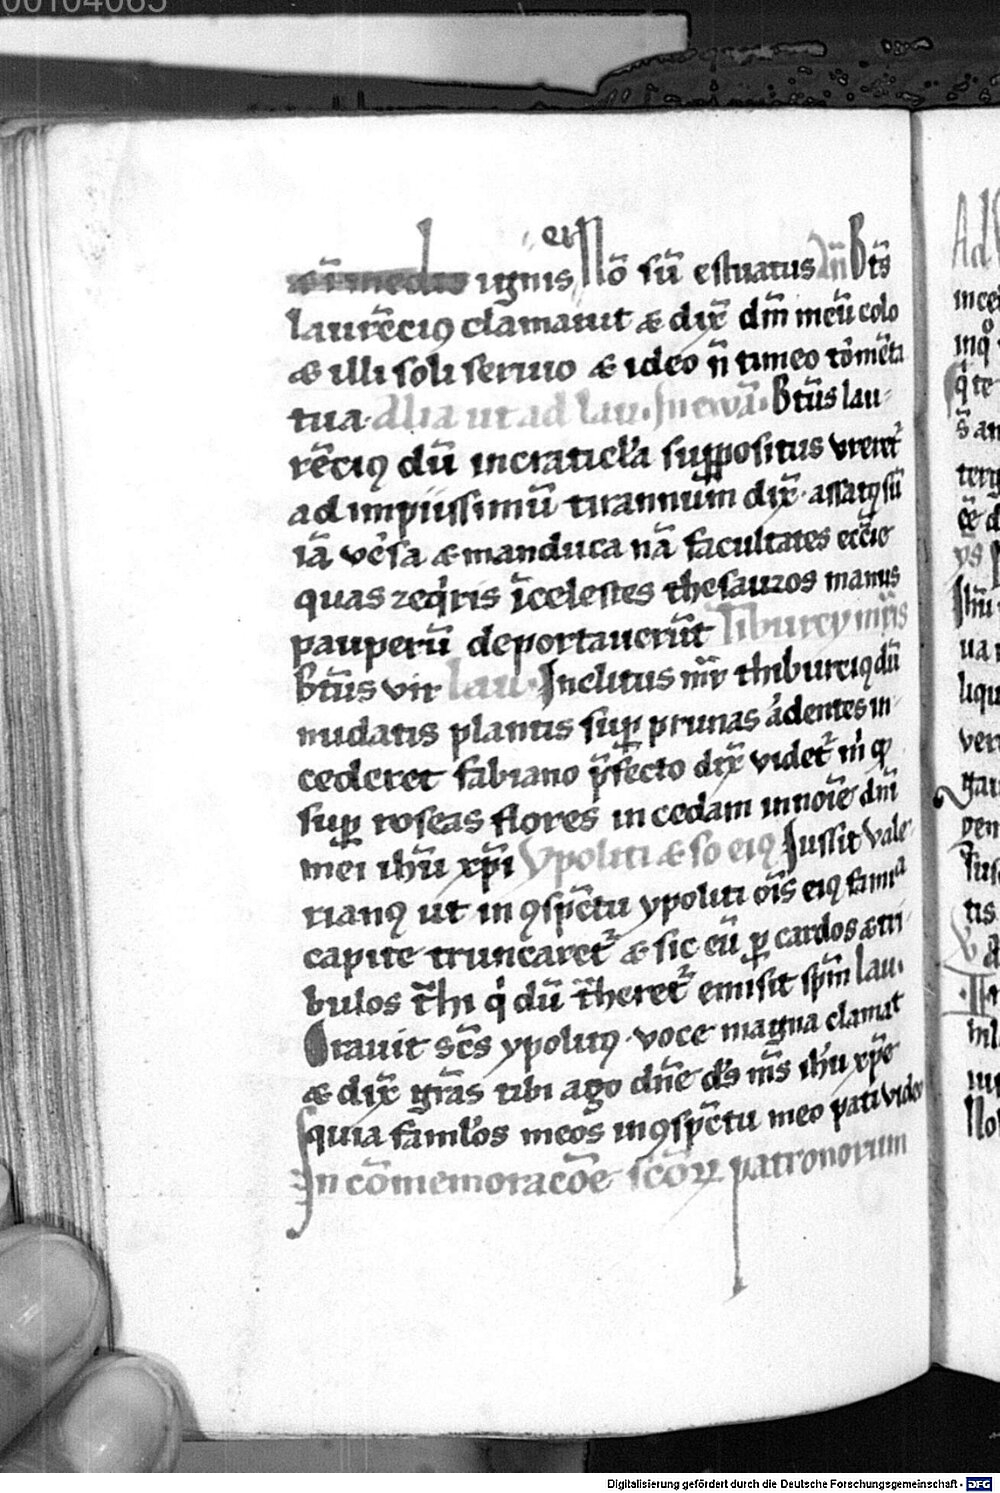 00104065
et
ignis Nō sū estuatus Añ Btŝ
laurēciꝰ clamauit & dix̄ dm̄ meū colo
& illi soli seruio & ideo n̄ timeo tōmēta
tua Alia ut ad lau. In ewā. Btūs lau
rēciꝰ dū in craticl̄a sup̄positus vreret̄
ad impiissimū tirannum dix̄ assatꝰ sū
iā v̄sa & manduca nā facultates ecc̄ie
quas req̇ris ī celestes thesauros manus
pauperū deportauerūt Tiburcy mr̄is
Btūs vir lau. Inclitus mr̄ thiburciꝰ dū
nudatis plantis sup̱ prunas ādentes in
cederet fabiano p̄fecto dix̄ videt̄ m̄ qꝫ
sup̱ roseas flores in cedam in noīe dn̄i
mei ihū xp̄i Ypoliti & so eiꝰ Iussit vale
rianꝰ ut in ꝯsp̄ctu ypoliti oīs eiꝰ familia
capite truncaret̄ & sic eū p̱ cardos & tri
bulos t̄hi q̇ dū t̄heret̄ emisit sp̄m lau.
Orauit sc̄s ypolitꝰ voce magna clamāt
& dix̄ gr̄as tibi ago dn̄e ds̄ ms̄ ihū xp̄e
quia faml̄os meos in ꝯsp̄ctu meo pati vides
In cōmemoracōe sc̄oꝝ patronorum
Digitalisierung gefördert durch die Deutsche Forschungsgemeinschaft - DFG